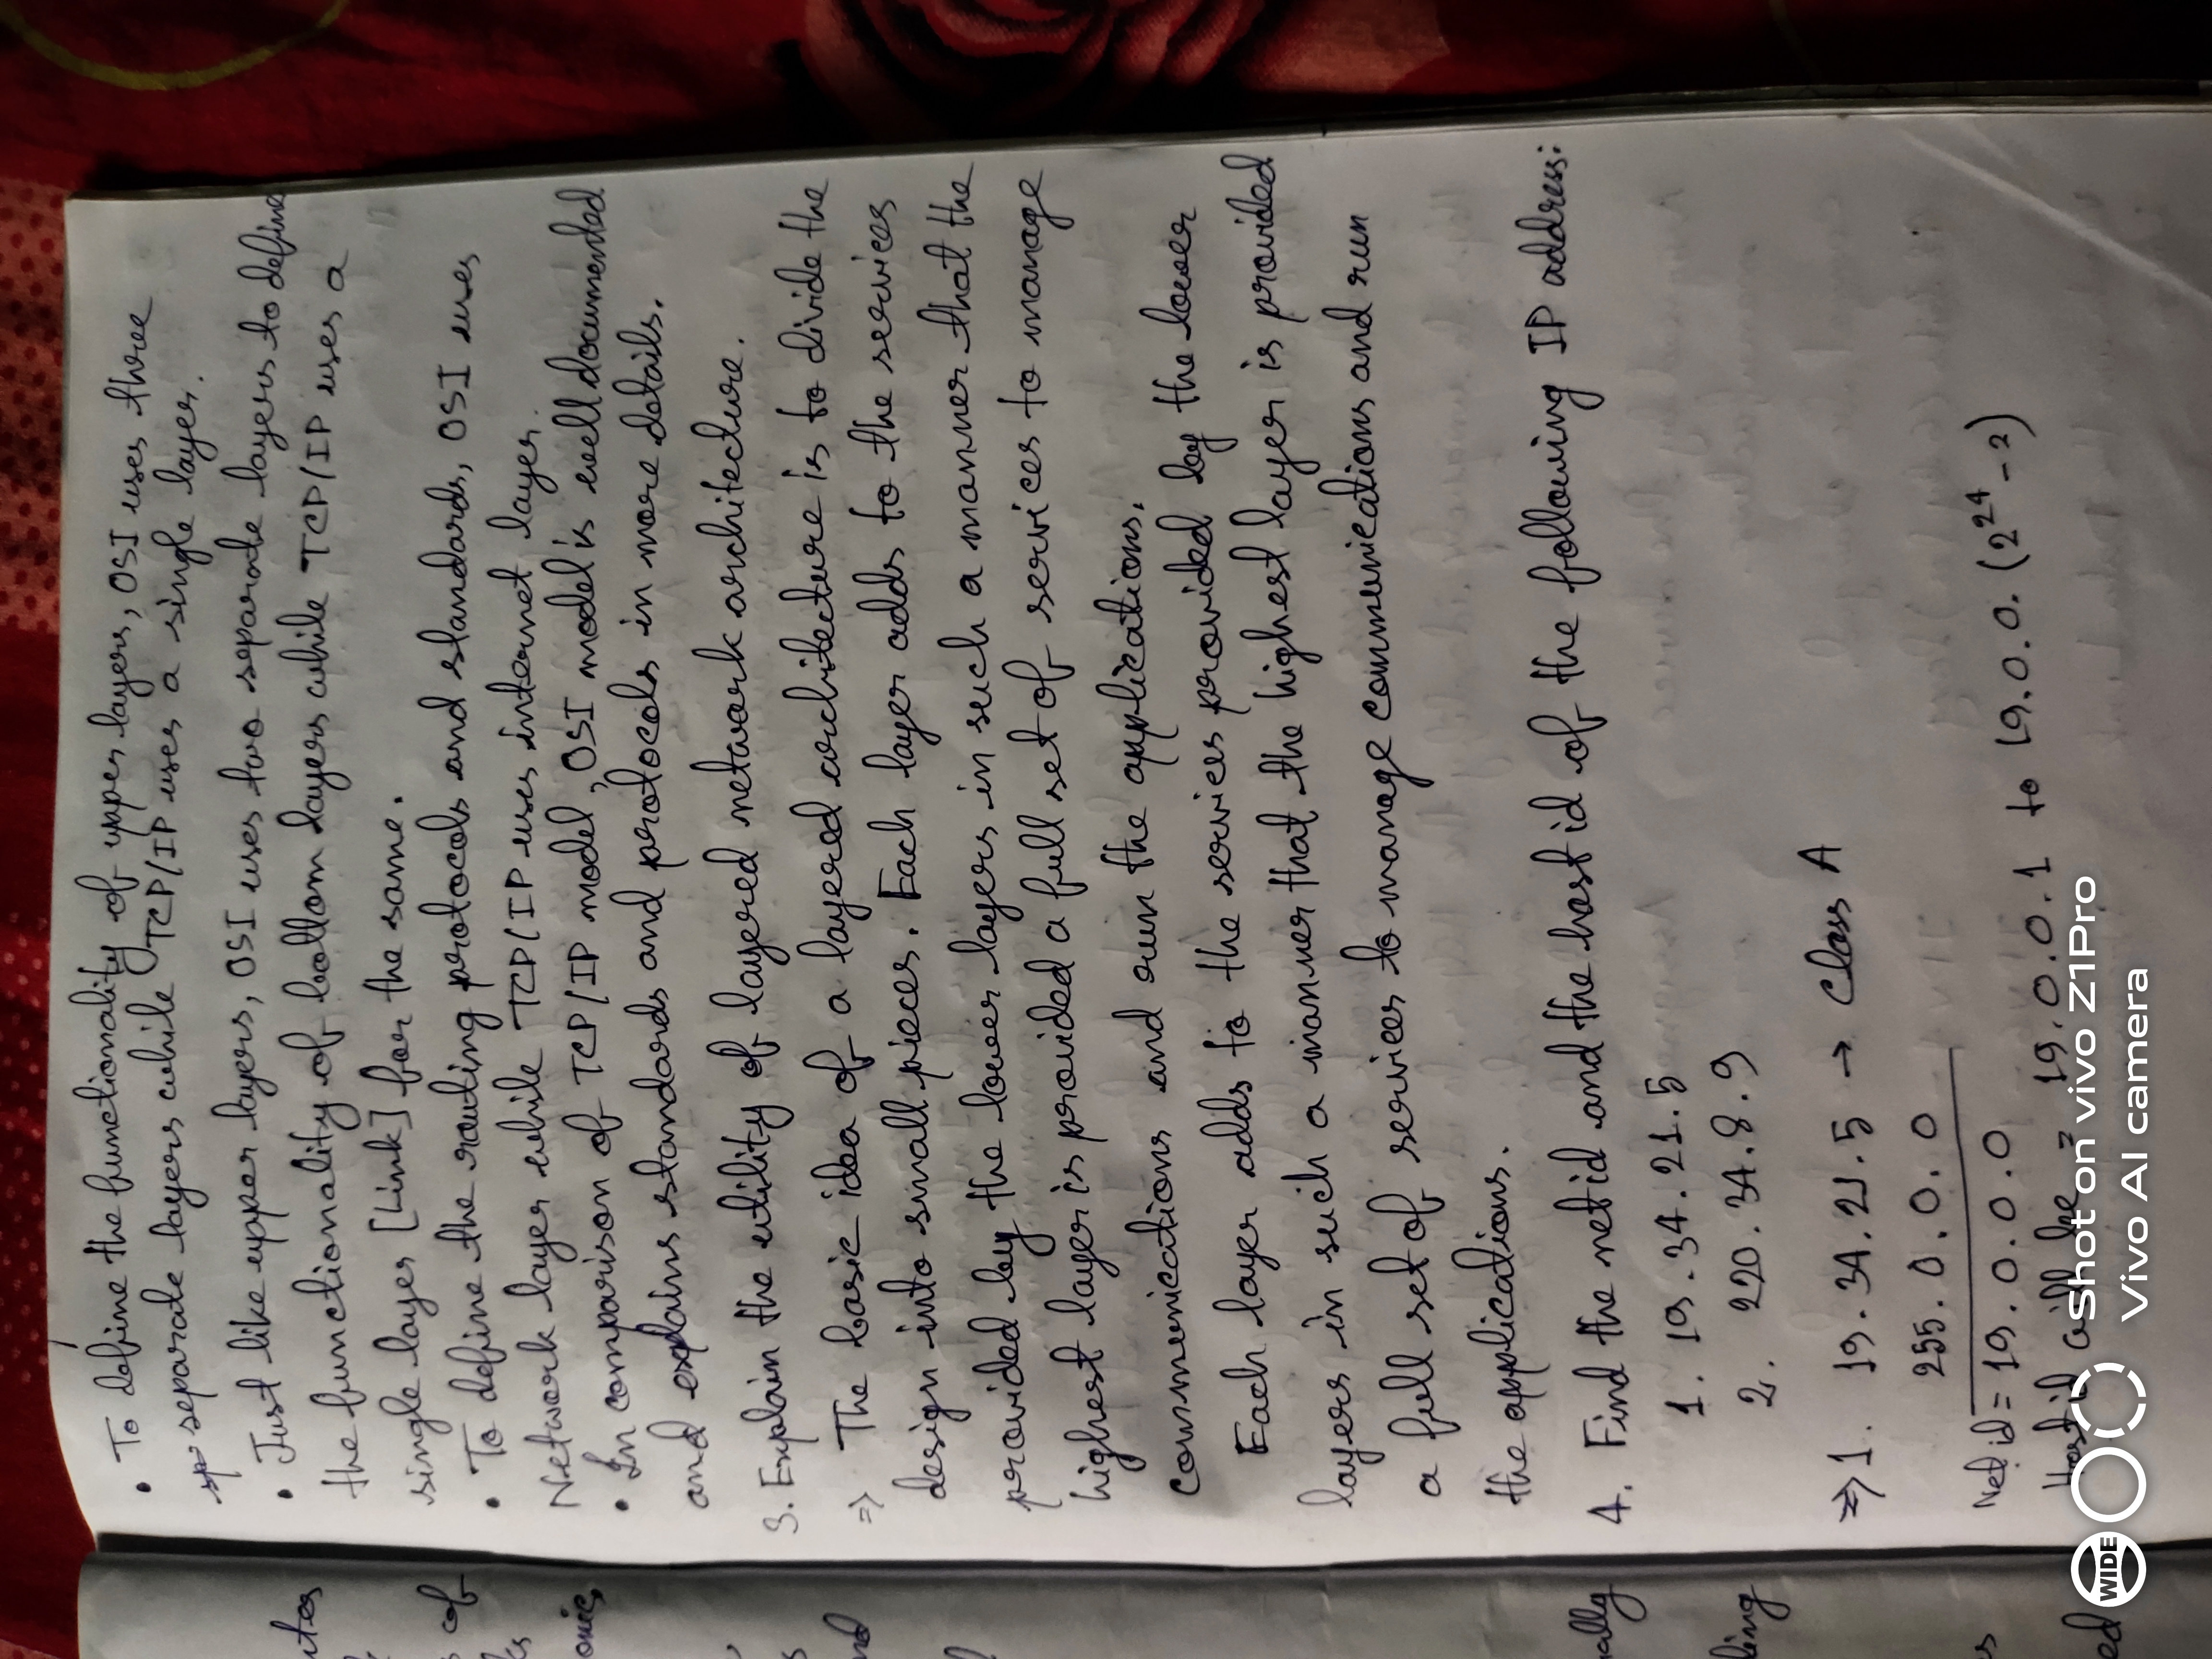 • To define the functionality of upper layers, OSI uses three
separate layers while TCP/IP uses a single layer.
• Just like upper layers, OSI uses two separate layers to define
the functionality of bottom layers while TCP/IP uses a
single layer [Link] for the same.
• To define the routing protocols and standards, OSI uses
Network layer while TCP/IP uses internet layer.
• In comparison of TCP/IP model, OSI model is well documented
and explains standards and protocols in more details.
3. Explain the utility of layered network architecture.
⇒ The basic idea of a layered architecture is to divide the
design into small pieces. Each layer adds to the services
provided by the lower layers in such a manner that the
highest layer is provided a full set of services to manage
communications and run the applications.
Each layer adds to the services provided by the lower
layers in such a manner that the highest layer is provided
a full set of services to manage communications and run
the applications.
4. Find the netid and the host id of the following IP address:
1. 19.34.21.5
2. 220.34.8.9
⇒ 1. 19.34.21.5 → Class A
255.0.0.0
Net id = 19.0.0.0
Host id will be = 19.0.0.1 to 19.0.0.(2²⁴-2)
WIDE
Shot on vivo Z1Pro
Vivo AI camera